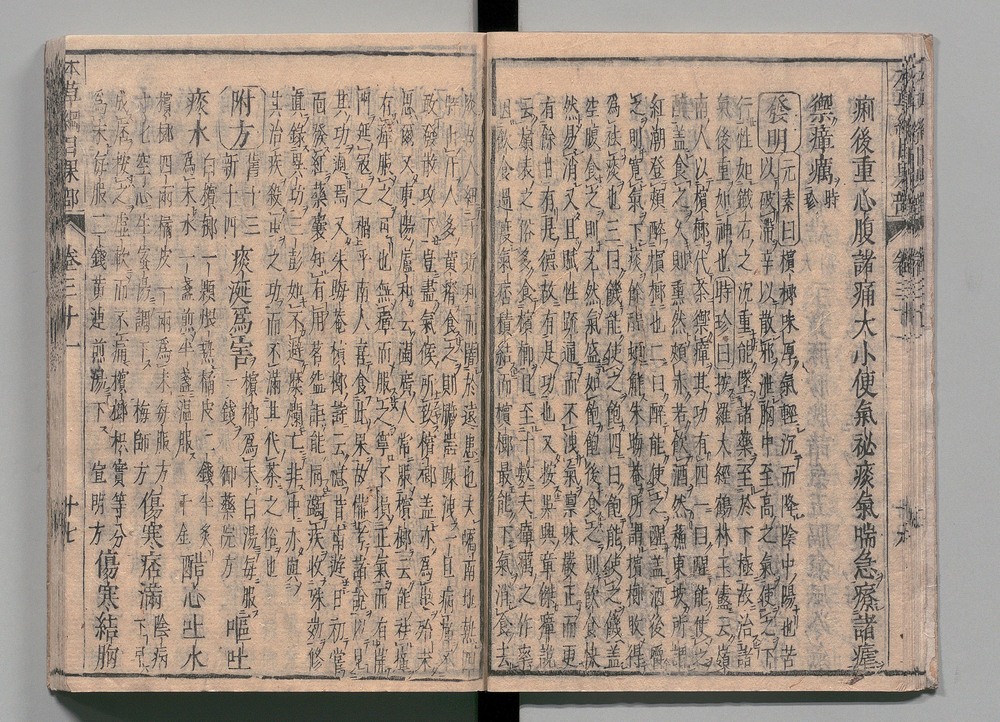 痢後重心腹諸痛大小便氣祕痰氣喘急療諸瘧
禦瘴癘 時珍
發明 元素曰檳榔味厚氣輕沉而降陰中陽也苦
以破滯辛以散邪泄胸中至高之氣使之下
行性如鐵石之沉重能墜諸藥至於下極故治諸
氣後重如神也 時珍曰按羅大經鶴林玉露云嶺
南人以檳榔代茶禦瘴其功有四一曰醒能使之
醉蓋食之久則熏然頰赤若飲酒然蘇東坡所謂
紅潮登頰醉檳榔也二曰醉能使之醒蓋酒後嚼
之則寬氣下痰餘酲頓解朱晦庵所謂檳榔收得
為祛痰也三曰饑能使之飽四曰飽能使之饑蓋
空腹食之則充然氣盛如飽飽後食之則飲食快
然易消又且賦性疏通而不洩氣稟味嚴正而更
有餘甘有是德故有是功也又按吳興章傑瘴說
云嶺表之俗多食檳榔日至十數夫瘴癘之作率
因飲食過度氣痞積結而檳榔最能下氣消食去
政發散攻下豈盡氣候所致檳榔蓋亦為患殆未
思爾又東陽盧和云閩廣人常服檳榔云能祛瘴
有瘴服之可也無瘴而服之寧不損正氣而有開
門延寇之禍乎南人喜食此果故備考諸說以見
其功過焉又朱晦菴檳榔詩云憶昔南遊日初嘗
而發紅藥囊知有用茗盌詎能同蠲疾收殊效修
真錄異功三彭如不避糜爛亡非中亦與
其治疾殺蟲之功而不滿其代茶之俗也
附方 舊十三新十四 痰涎為害 檳榔為末白湯每服一錢 御藥院方 嘔吐
痰水 白檳榔一顆煨熟橘皮一錢半炙為末水一盞煎半盞溫服 千金 醋心吐水
檳榔四兩橘皮一兩為末每服方寸匕空心生蜜湯調下 梅師方 傷寒痞滿 陰病下早
成痞按之虛軟而不痛檳榔枳實等分
為末每服二錢黃連煎湯下 宣明方 傷寒結胸
本草綱目果部 卷三十一 廿七